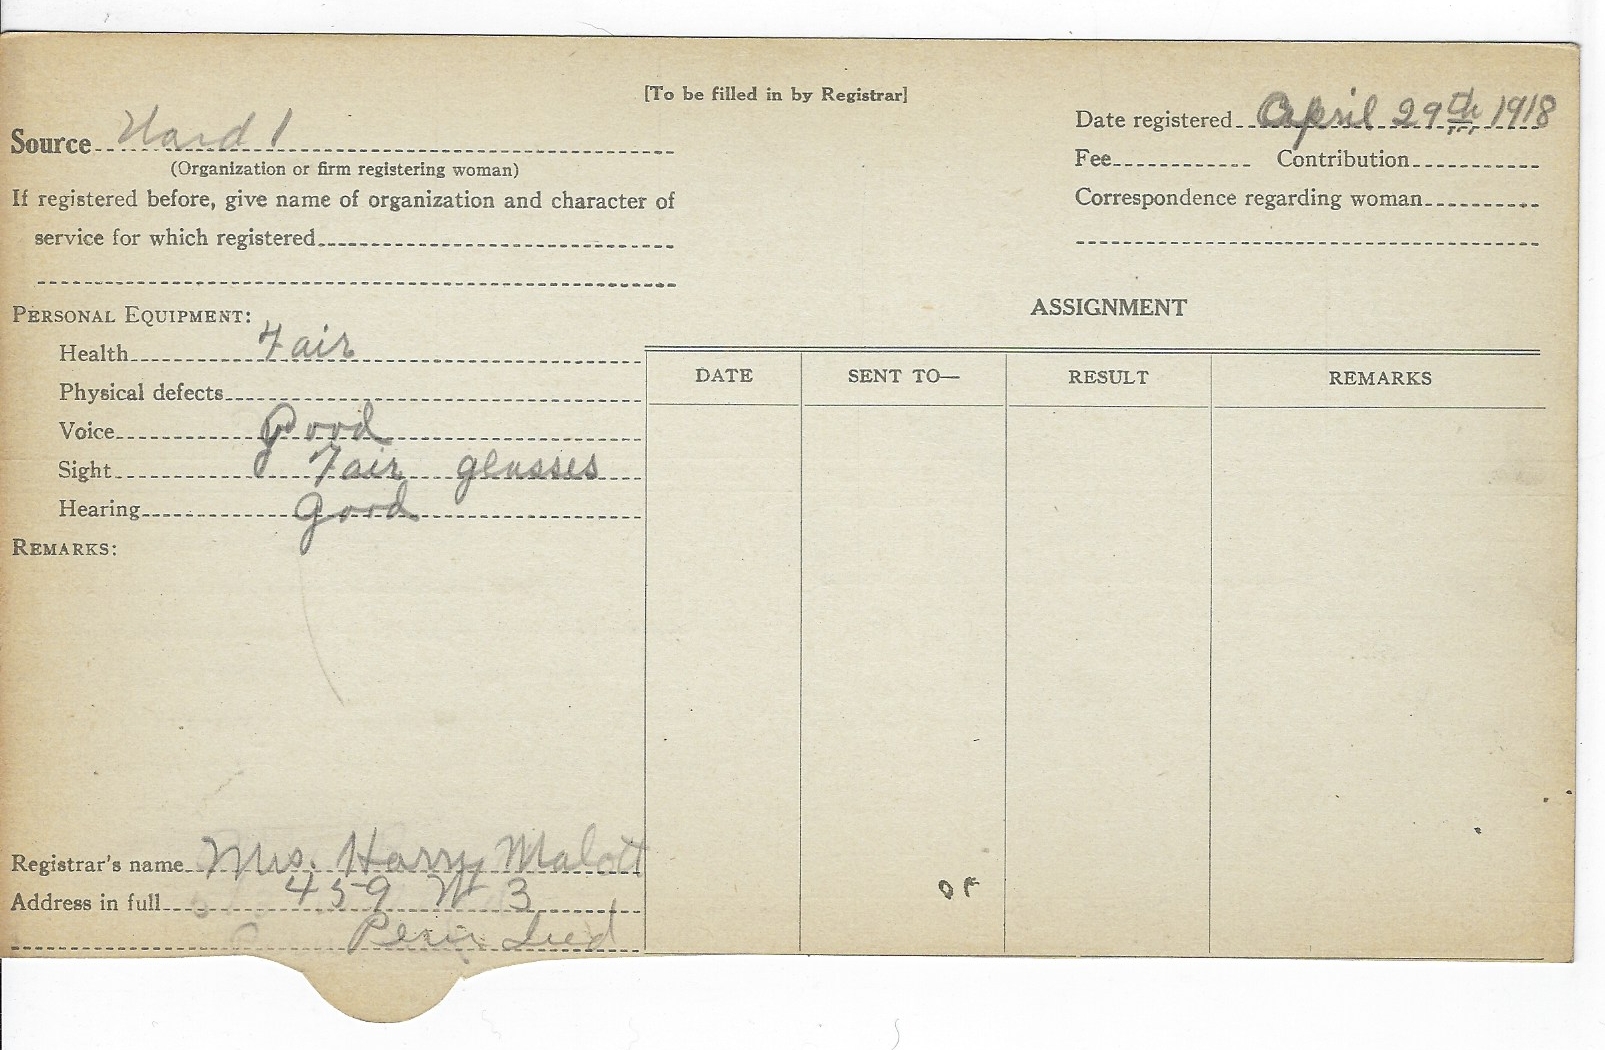 [To be filled in by Registrar]
Source Ward 1
(Organization or firm registering woman)
If registered before, give name of organization and character of
service for which registered
Date registered April 29th 1918
Fee Contribution
Correspondence regarding woman
PERSONAL EQUIPMENT:
Health Fair
Physical defects
Voice good
Sight Fair glasses
Hearing good
REMARKS:
ASSIGNMENT
DATE SENT TO— RESULT REMARKS
Registrar's name Mrs. Harry Malott
Address in full 459 W 3
Peru Ind